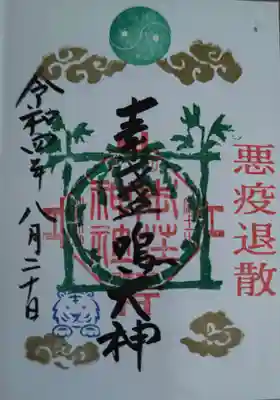 悪疫退散
素盞嗚大神
令和四年 八月二十日